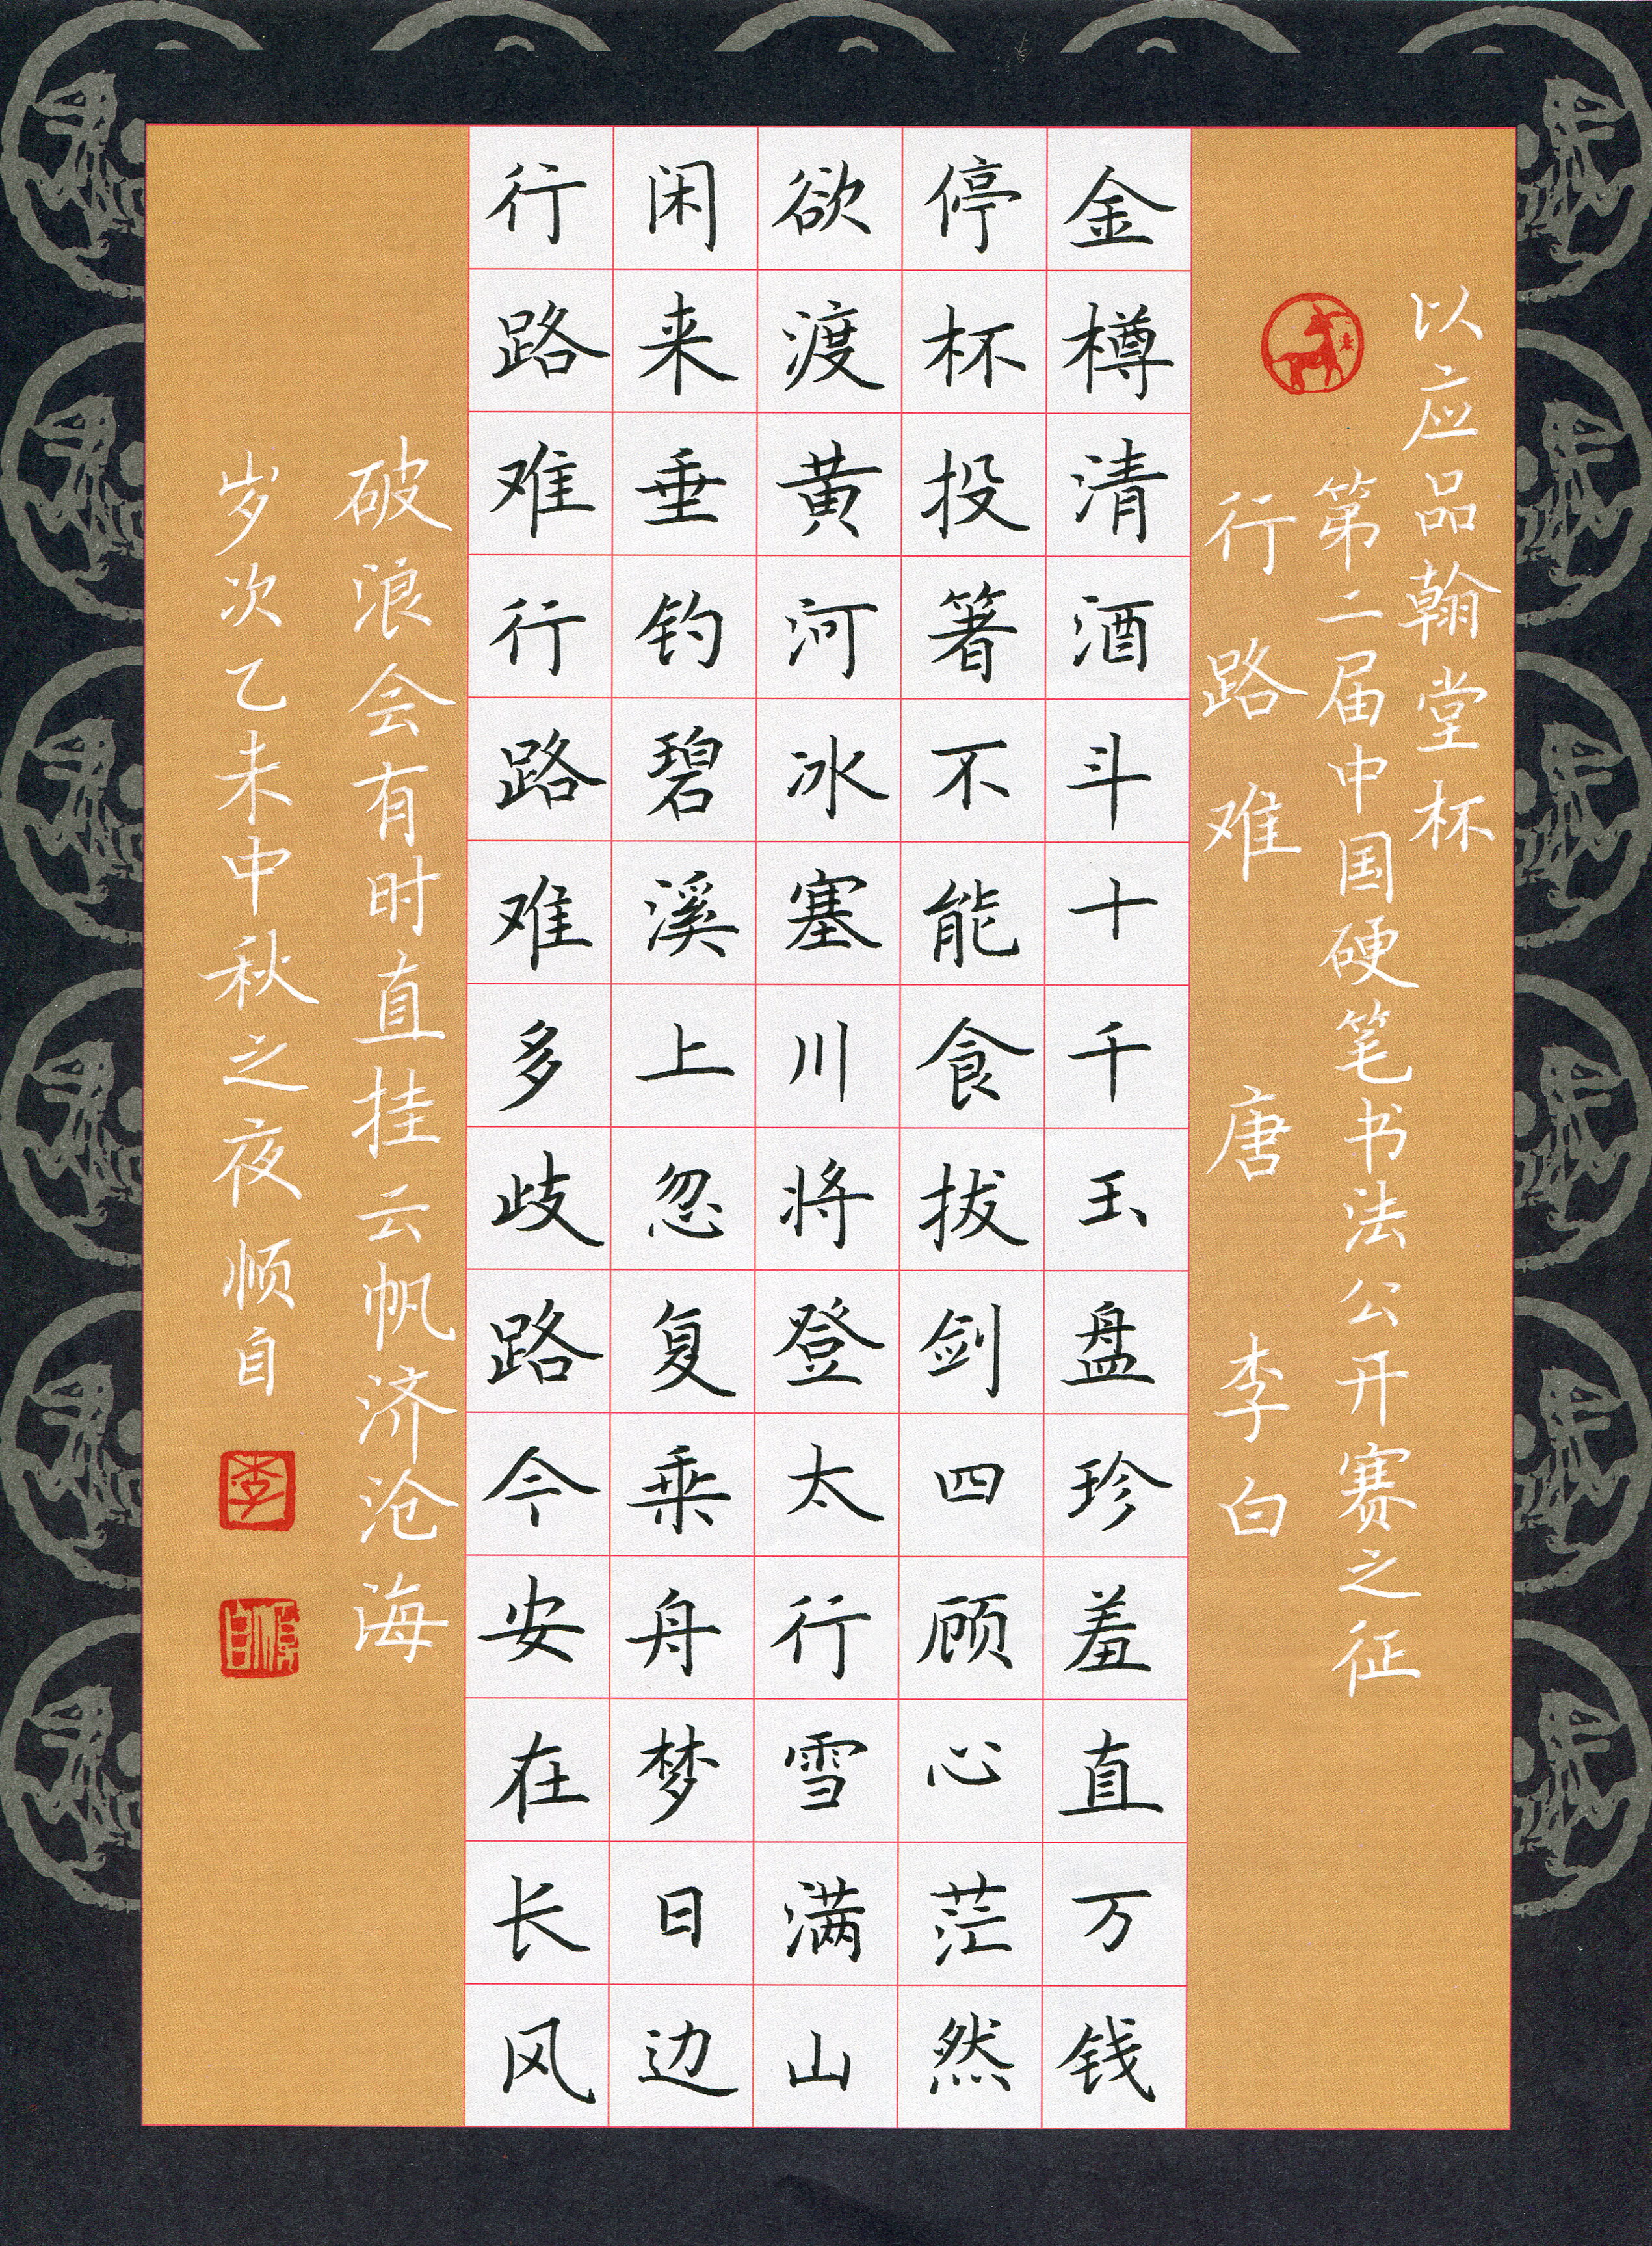 以应品翰堂杯
第二届中国硬笔书法公开赛之征
行路难 唐 李白
金樽清酒斗十千玉盘珍羞直万钱
停杯投箸不能食拔剑四顾心茫然
欲渡黄河冰塞川将登太行雪满山
闲来垂钓碧溪上忽复乘舟梦日边
行路难行路难多歧路今安在长风
破浪会有时直挂云帆济沧海
岁次乙未中秋之夜顺自
李
顺自